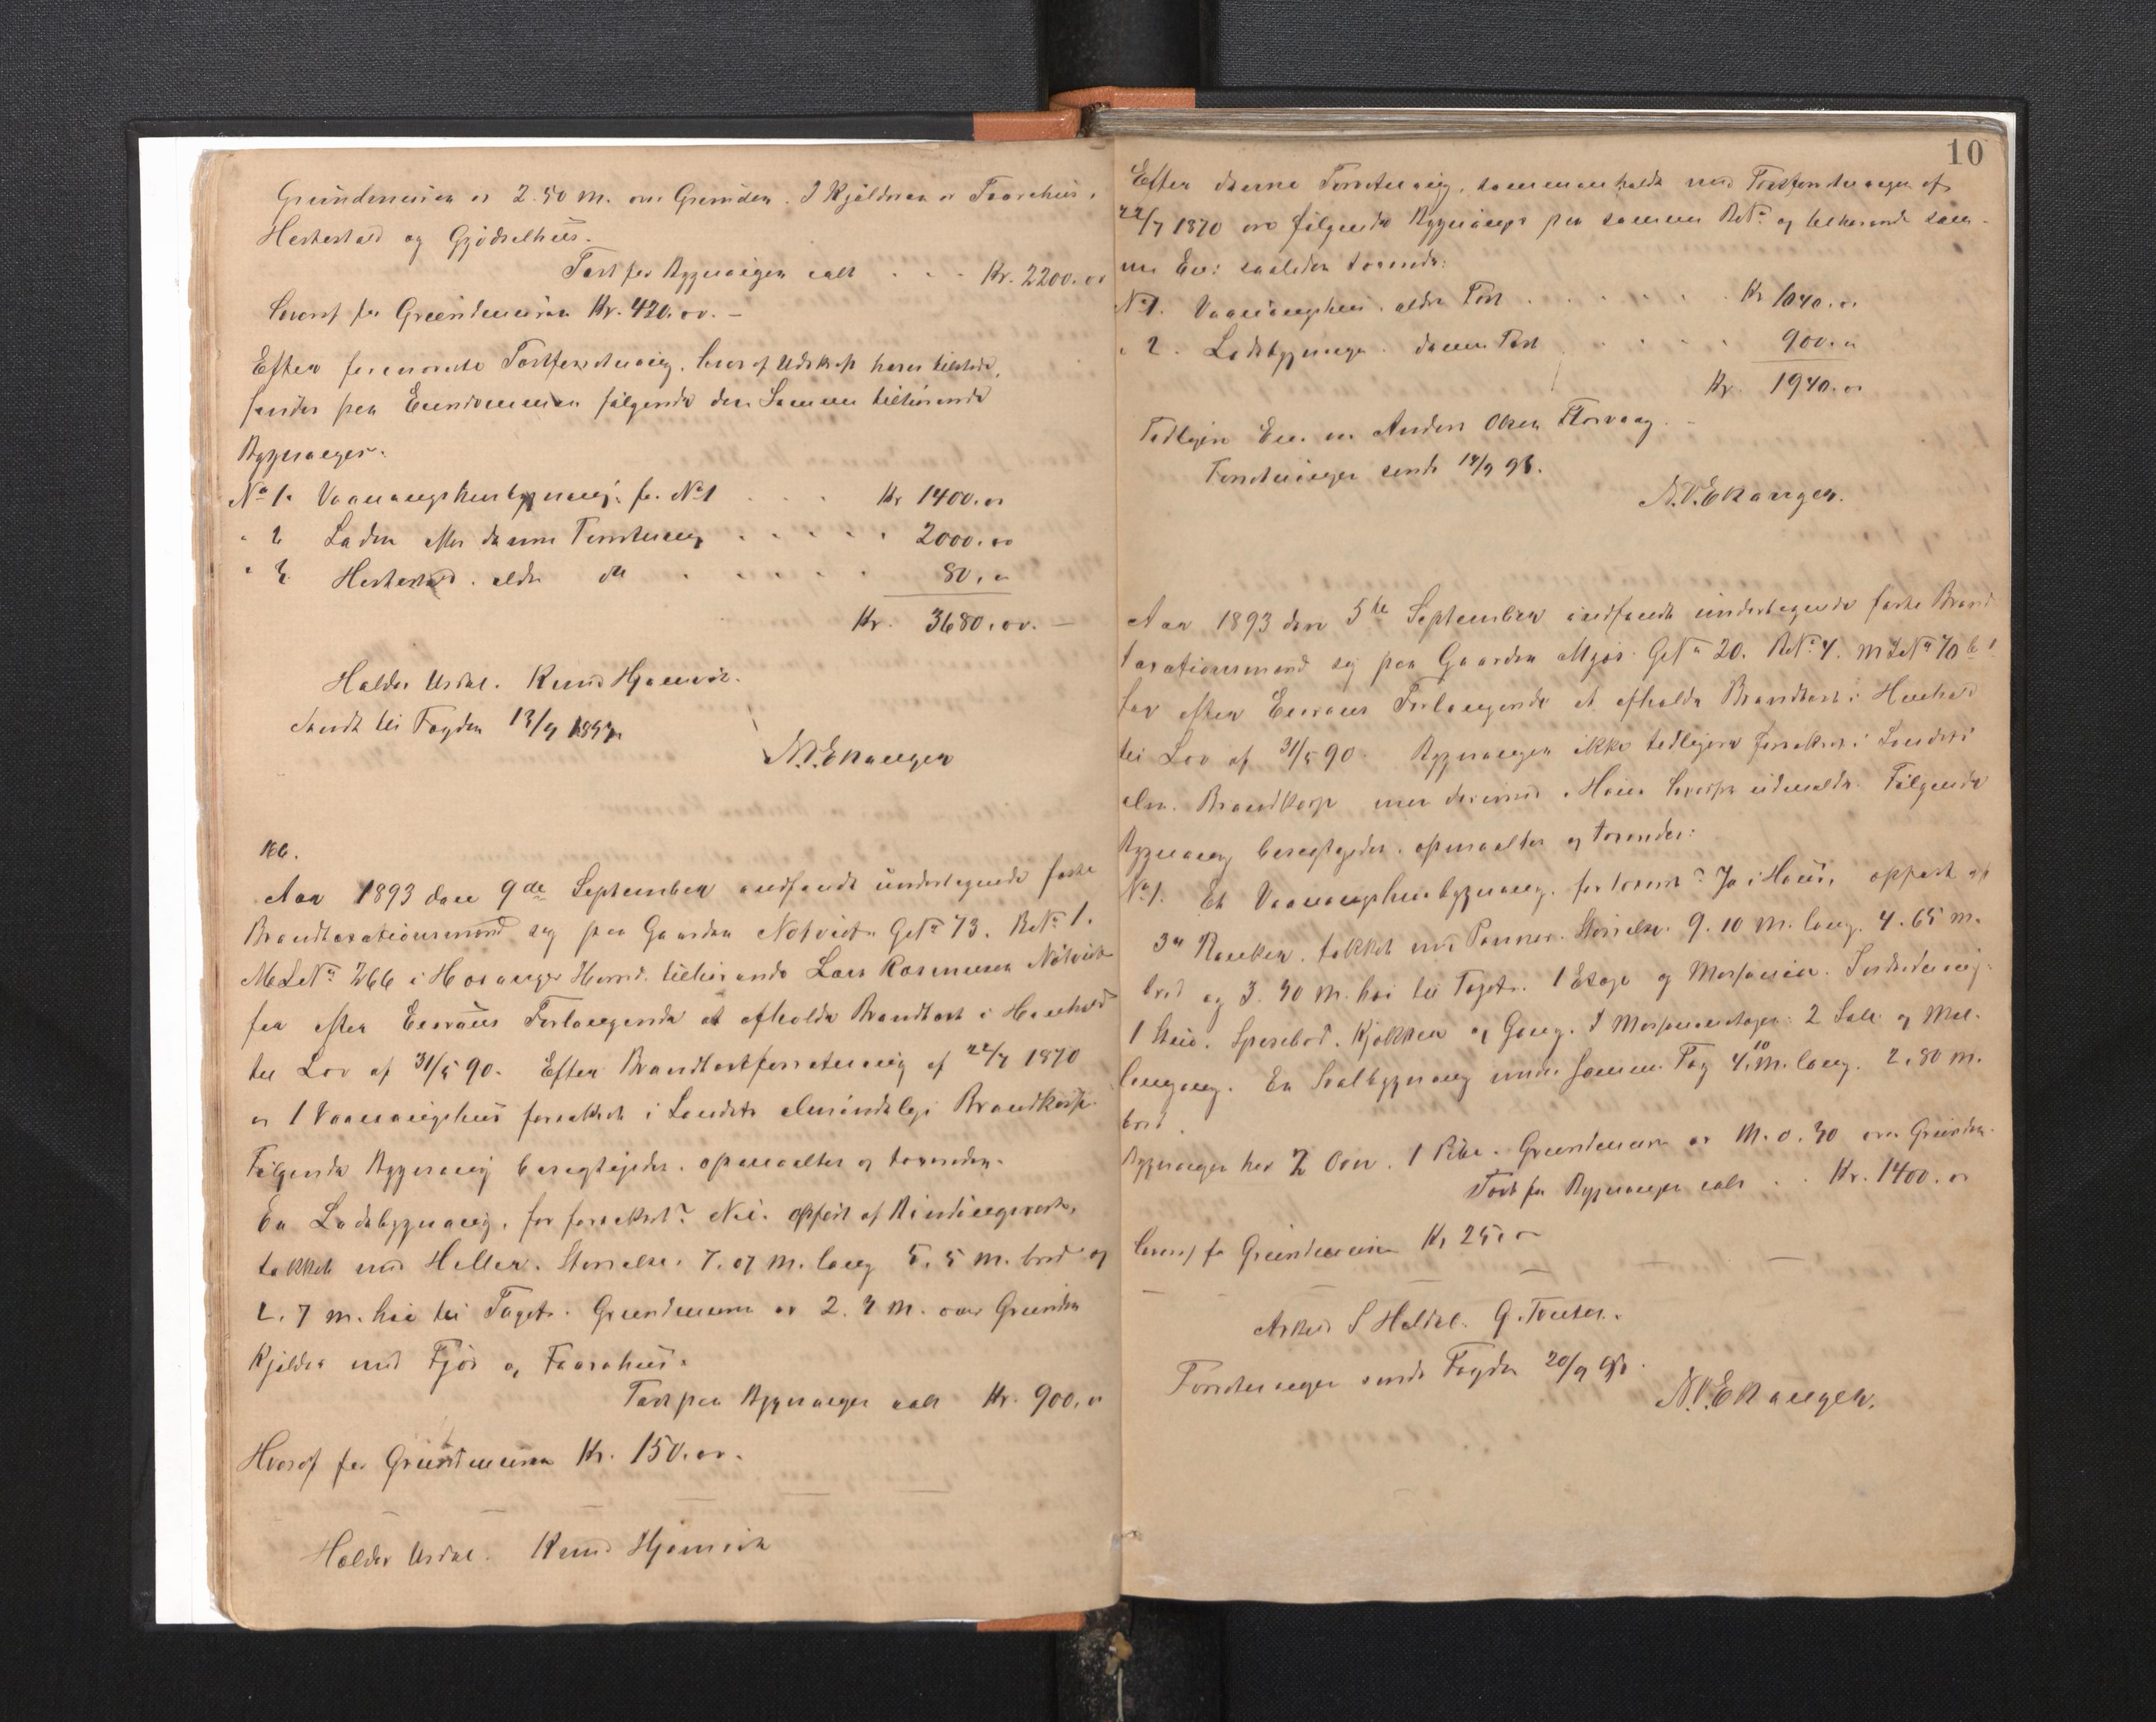 Grundmuren er 2.50 M. over Grunden. I Kjelderen er Faarehus,
Hestestald og Gjødselhus.
Taxt for Bygningen ialt . . . Kr. 2200.00
hvoraf for Grundmuren Kr. 420.00. –
Efter forannævnte Taxtforretning, hvoraf Udskrift haves tilstede,
findes paa Eiendommen følgende den Samme tilhørende
Bygninger:
No 1. Vaaningshusbygning. fr. No 1 . . . Kr 1400.00
" 2 Laden efter denne Forretning . . . . . 2000.00
" 3. Hestestald. ældre do . . . . . 80.00
Kr. 3680.00. –
Haldor Urdal. Knud Hjelmvik.
Sendt til Fogden 13/9 1893
N.V. Ekanger
166.
Aar 1893 den 9de September indfandt undertegnede faste
Brandtaxationsmænd sig paa Gaarden Nøtveit GNo 73. BNo 1.
MLNo 266 i Hosanger Herred. tilhørende Lars Rasmusen Nøtveit
for efter Eierens Forlangende at afholde Brandtaxt i Henhold
til Lov af 31/5 90. Efter Brandtaxtforretning af 22/7 1870
er 1 Vaaningshus forsikret i Landets almindelige Brandkasse.
Følgende Bygning besigtigedes, opmaaltes og taxeredes.
En Ladebygning, før forsikret? Nei. opført af Bindingsverk,
tækket med Heller. Størrelse. 7.07 M. lang 5.5 M. bred og
2.7 M. høi til Taget. Grundmuren er 2.2 M. over Grunden
Kjelder med Fjøs og Faarehus.
Taxt paa Bygningen ialt Kr. 900.00
Hvoraf for Grundmuren Kr. 150.00.
Haldor Urdal. Knud Hjelmvik
10
Efter denne Forretning, sammenholdt med Taxtforretningen af
22/7 1870 ere følgende Bygninger paa samme BNo og tilhørende sam-
me Eier saaledes taxerede:
No 1. Vaaningshus. ældre Taxt . . . . . . Kr 1040.00
" 2. Ladebygningen. denne Taxt . . . . 900.00
Kr. 1940.00
Tidligere Eier var Anders Olsen Florvaag.
Forretningen sendt 14/9 93.
N.V. Ekanger.
Aar 1893 den 5te September indfandt undertegnede faste Brand
taxationsmænd sig paa Gaarden Mjøs GNo 20. BNo 4. MLNo 70 b 1
for efter Eierens Forlangende at afholde Brandtaxt i Henhold
til Lov af 31/5 90. Bygningen ikke tidligere forsikret i Landets
alm. Brandkasse men derimod i Haus hvorfra udmeldt. Følgende
Bygning besigtigedes, opmaaltes og taxeredes:
No 1. En Vaaningshusbygning. før taxeret? Ja i Haus, opført af
3" Planker. tækket med Panner. Størrelse. 9.10 M. lang. 4.65 M.
bred og 3.30 M. høi til Taget. 1 Etage og Mørfanien. Indredning:
1 Stue. Spisebod. Kjøkken og Gang. I 2 Sale og Mel-
lemgang. En Svalbygning under samme Tag 4.10 M. lang. 2.80 M.
bred.
Bygningen har 2 Ovne. 1 Pibe. Grundmuren er M. 0.30 over Grunden.
Taxt for Bygningen ialt . . Kr. 1400.00
hvoraf for Grundmuren Kr 25.00
S Haldal. G. Toutes.
Forretningen sendt Fogden 20/9 93.
N.V. Ekanger.